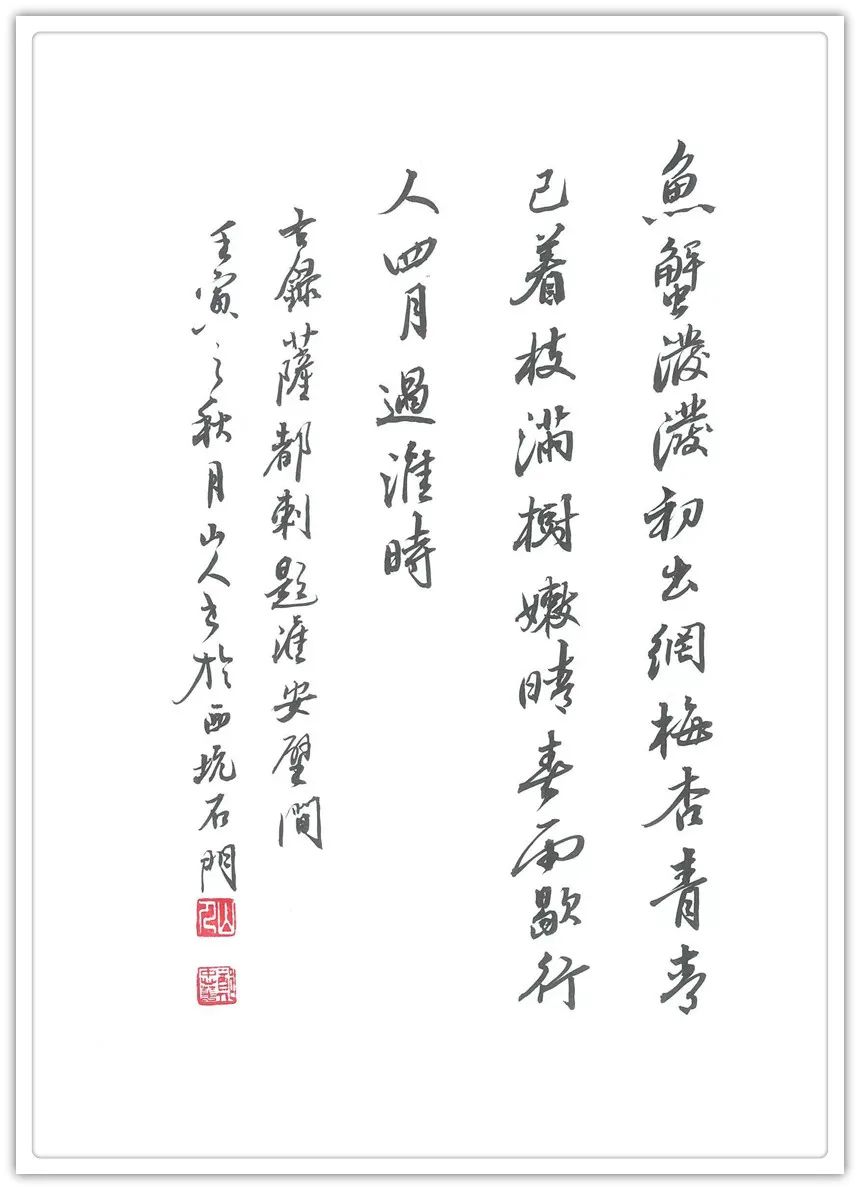 魚蟹潑潑初出網梅杏青青
已着枝滿樹嫩晴春雨歇行
人四月過淮時
古錄薩都刺題淮安壁間
壬寅之秋月山人書於西坑石門
山人